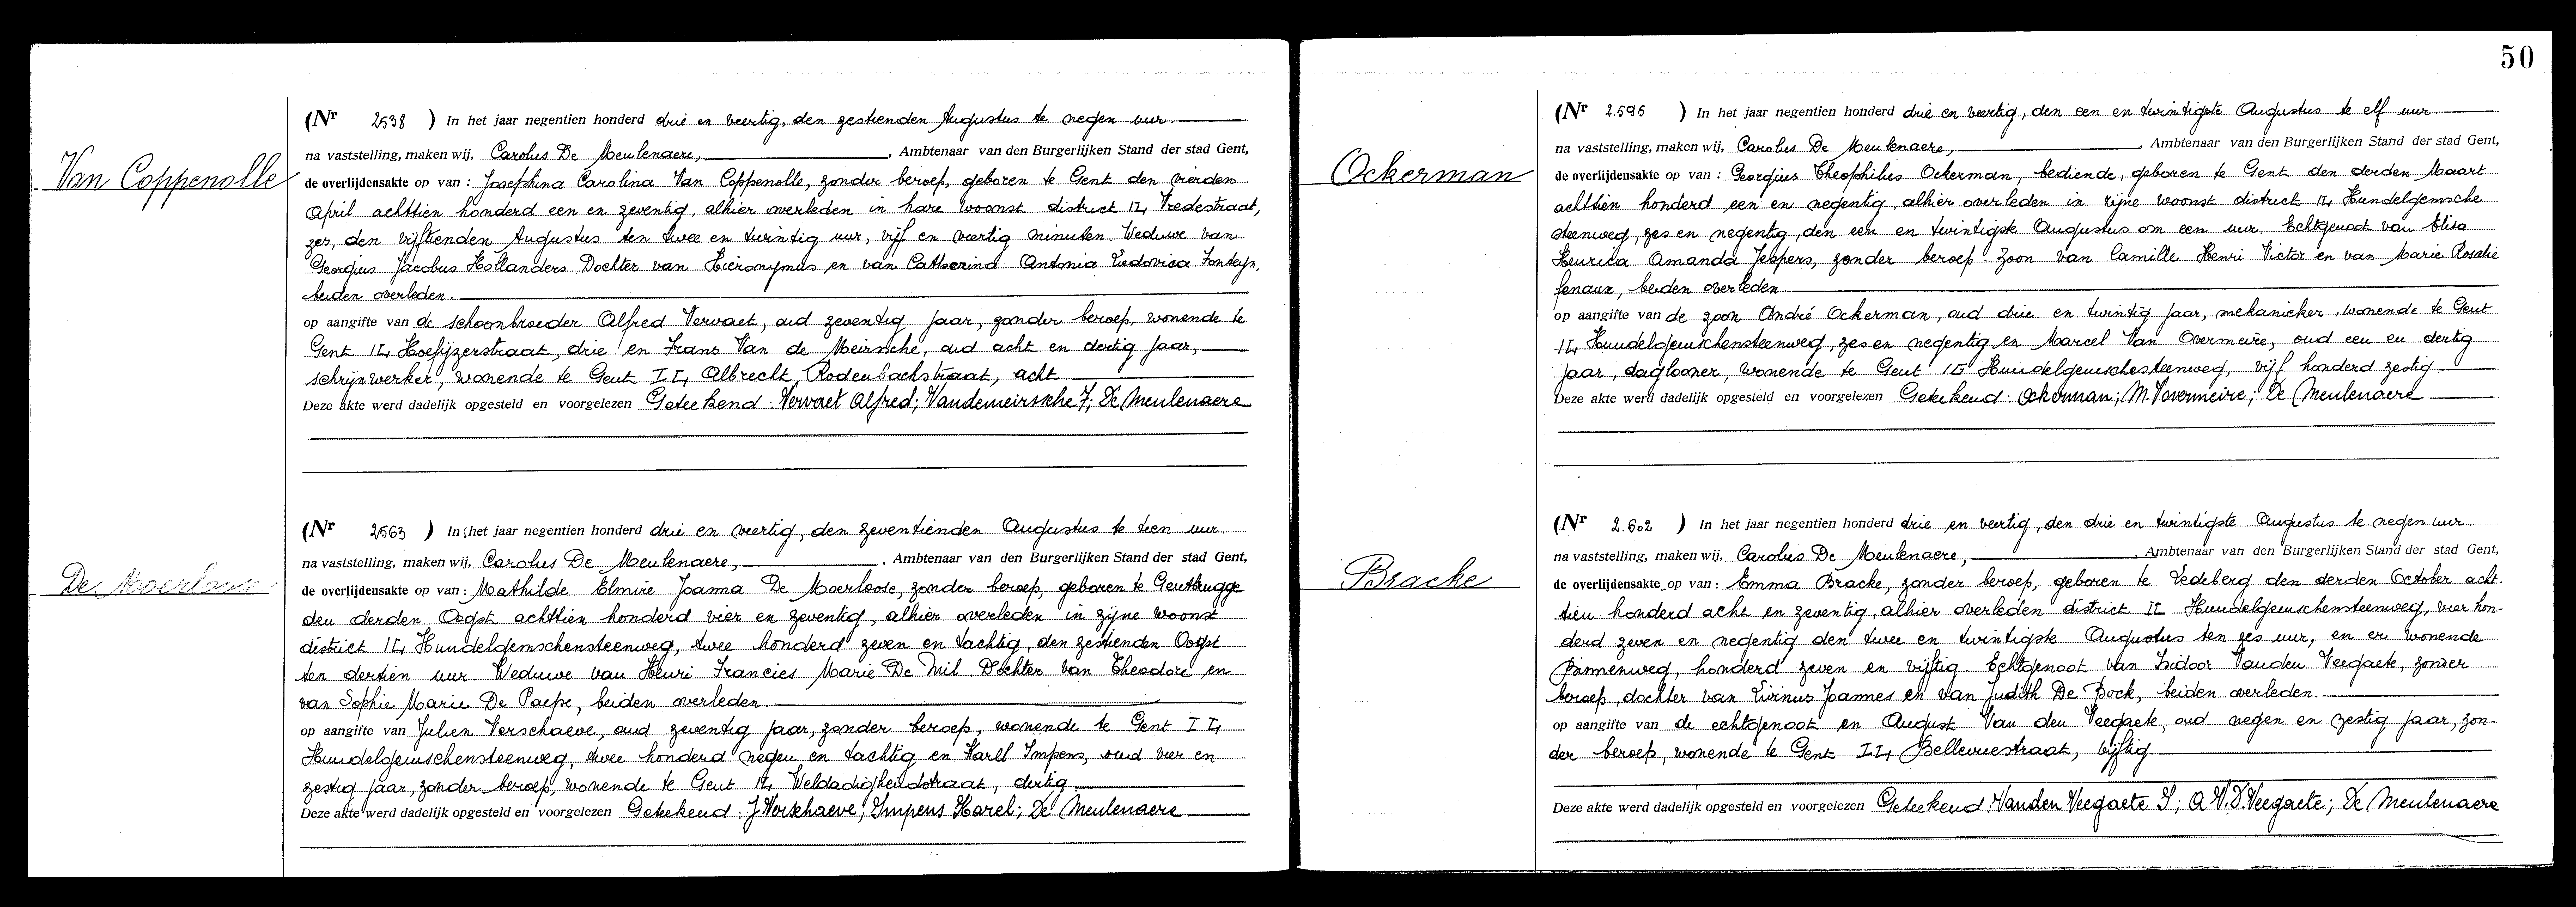 Van Coppenolle
(Nr 2538 ) In het jaar negentien honderd drie en veertig, den zestienden Augustus te negen uur.
na vaststelling, maken wij, Carolus De Meulenaere, , Ambtenaar van den Burgerlijken Stand der stad Gent,
de overlijdensakte op van : Josephina Carolina Van Coppenolle, zonder beroep, geboren te Gent den vierden
April achttien honderd een en zeventig, alhier overleden in hare woonst district II, Vredestraat,
zes, den vijftienden Augustus ten twee en twintig uur, vijf en veertig minuten. Weduwe van
Georgius Jacobus Hollanders Dochter van Hieronymus en van Catharina Antonia Ludovica Fonteyn,
beiden overleden.
op aangifte van de schoonbroeder Alfred Vervaet, oud zeventig jaar, zonder beroep, wonende te
Gent II, Hoefijzerstraat, drie en Frans Van de Meirsche, oud acht en dertig jaar,
schrijnwerker, wonende te Gent II, Albrecht, Rodenbachstraat, acht
Deze akte werd dadelijk opgesteld en voorgelezen Geteekend : Vervaet Alfred; Vandemeirssche F; De Meulenaere
De Moerloose
(Nr 2563 ) In het jaar negentien honderd drie en veertig, den zeventienden Augustus te tien uur
na vaststelling, maken wij, Carolus De Meulenaere, , Ambtenaar van den Burgerlijken Stand der stad Gent,
de overlijdensakte op van : Mathilde Elmire Joanna De Moerloose, zonder beroep, geboren te Gentbrugge
den derden Oogst achttien honderd vier en zeventig, alhier overleden in zijne woonst
district II, Hundelgemschensteenweg, twee honderd zeven en tachtig, den zestienden Oogst
ten dertien uur Weduwe van Henri Francies Marie De Mil. Dochter van Theodore en
van Sophie Marie De Paepe, beiden overleden
op aangifte van Julien Verschaeve, oud zeventig jaar, zonder beroep, wonende te Gent II,
Hundelgemschensteenweg, twee honderd negen en tachtig en Karel Impens, oud vier en
zestig jaar, zonder beroep, wonende te Gent II, Weldadigheidstraat, dertig
Deze akte werd dadelijk opgesteld en voorgelezen Geteekend : J Verschaeve; Impens Karel; De Meulenaere
50
Ockerman
(Nr 2.595 ) In het jaar negentien honderd drie en veertig, den een en twintigste Augustus te elf uur
na vaststelling, maken wij, Carolus De Meulenaere, , Ambtenaar van den Burgerlijken Stand der stad Gent,
de overlijdensakte op van : Georgius Theophilus Ockerman, bediende, geboren te Gent den derden Maart
achttien honderd een en negentig, alhier overleden in zijne woonst district II, Hundelgemsche
steenweg, zes en negentig, den een en twintigste Augustus om een uur. Echtgenoot van Elisa
Henrica Amanda Jespers, zonder beroep. Zoon van Camille Henri Victor en van Marie Rosalie
Fenaux, beiden overleden
op aangifte van de zoon André Ockerman, oud drie en twintig jaar, mekanieker, wonende te Gent
II, Hundelgemschensteenweg, zes en negentig en Marcel Van Overmeire, oud een en dertig
jaar, daglooner, wonende te Gent II Hundelgemschesteenweg, vijf honderd zestig
Deze akte werd dadelijk opgesteld en voorgelezen Geteekend : Ockerman; M. Vovermeire; De Meulenaere
Bracke
(Nr 2.602 ) In het jaar negentien honderd drie en veertig, den drie en twintigste Augustus te negen uur.
na vaststelling, maken wij, Carolus De Meulenaere, , Ambtenaar van den Burgerlijken Stand der stad Gent,
de overlijdensakte op van : Emma Bracke, zonder beroep, geboren te Ledeberg den derden October acht-
tien honderd acht en zeventig, alhier overleden district II Hundelgemschensteenweg, vier hon-
derd zeven en negentig den twee en twintigste Augustus ten zes uur, en er wonende
Binnenweg, honderd zeven en vijftig. Echtgenoot van Isidoor Vanden Veegaete, zonder
beroep, dochter van Livinus Joannes en van Judith De Bock, beiden overleden.
op aangifte van de echtgenoot en August Van den Veegaete, oud negen en zestig jaar, zon-
der beroep, wonende te Gent II, Bellevuestraat, vijftig
Deze akte werd dadelijk opgesteld en voorgelezen Geteekend : Vanden Veegaete I; A V. D. Veegaete; De Meulenaere